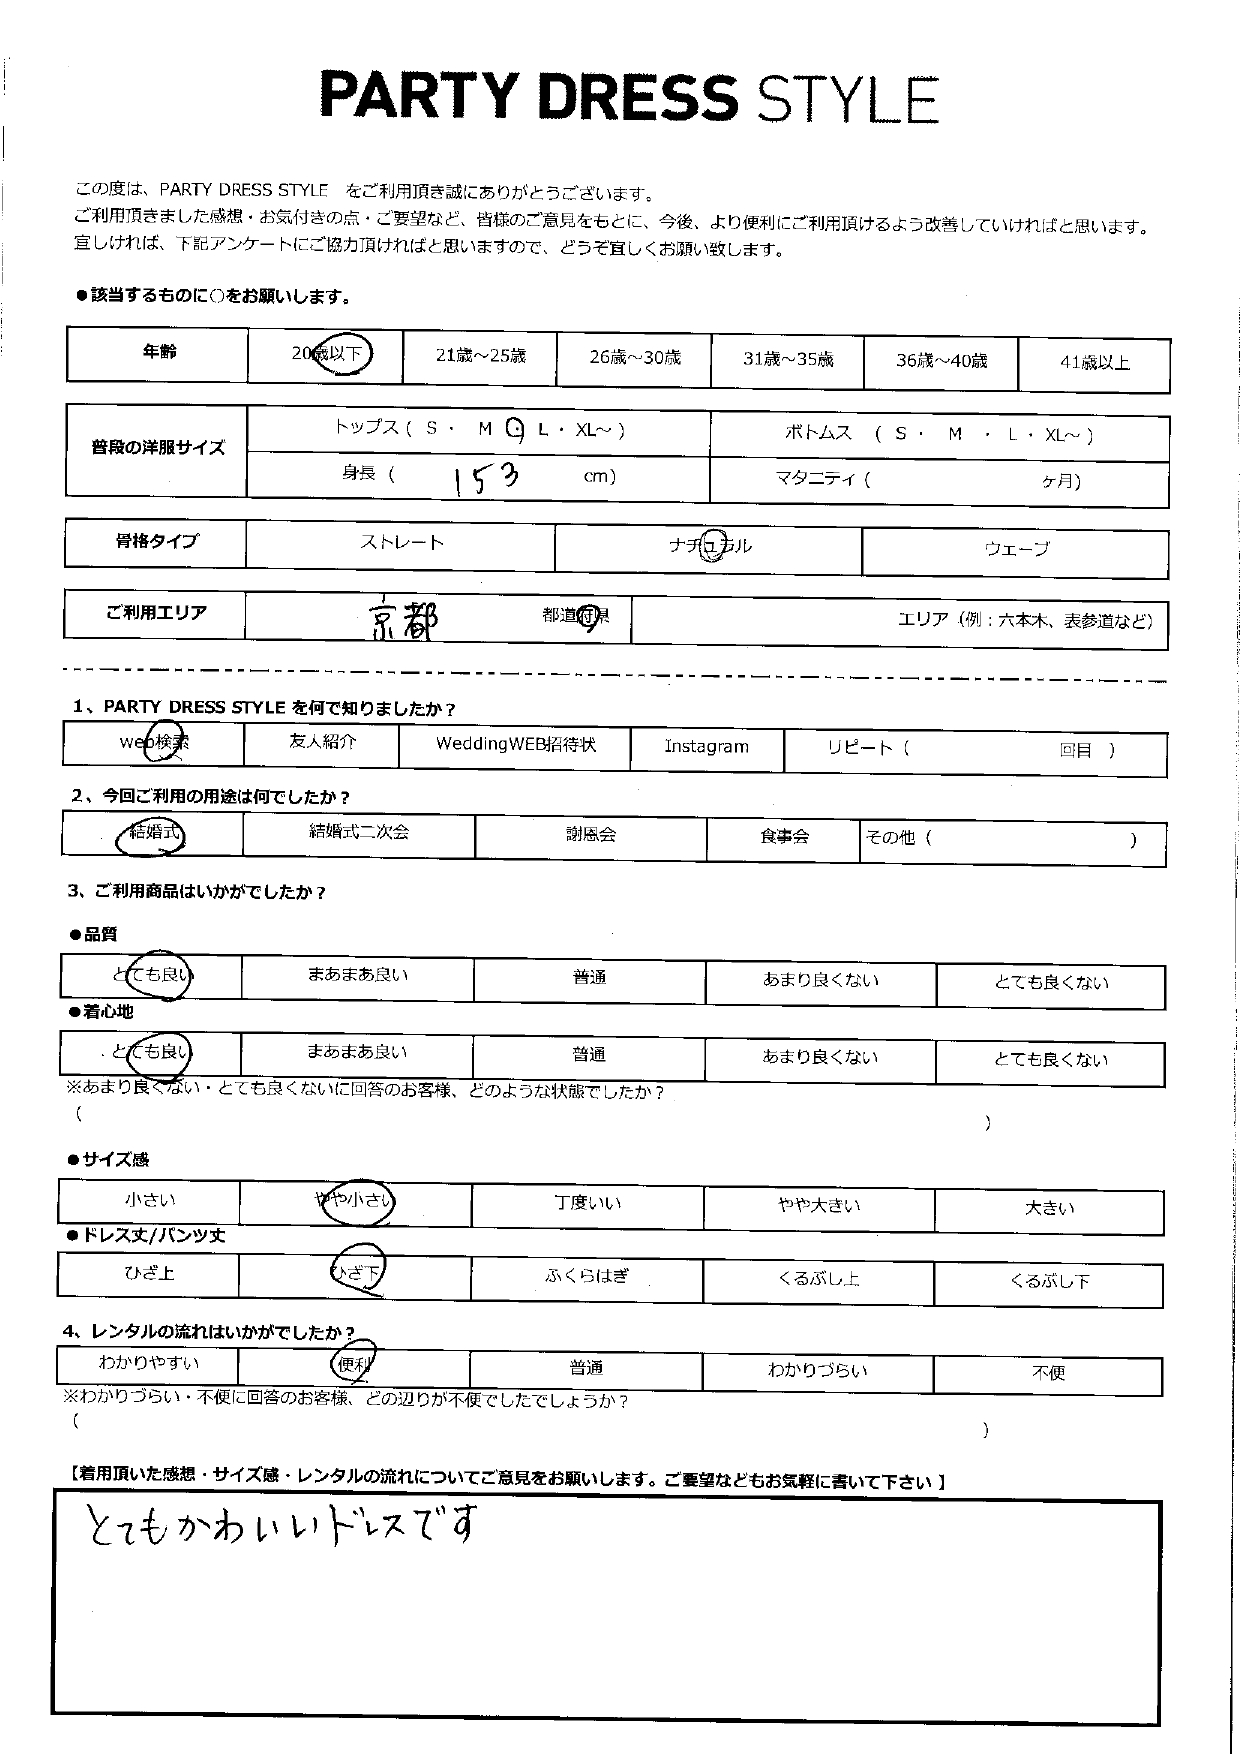 PARTY DRESS STYLE
この度は、PARTY DRESS STYLE をご利用頂き誠にありがとうございます。
ご利用頂きました感想・お気付きの点・ご要望など、皆様のご意見をもとに、今後、より便利にご利用頂けるよう改善していければと思います。
宜しければ、下記アンケートにご協力頂ければと思いますので、どうぞ宜しくお願い致します。
●該当するものに○をお願いします。
年齢 20歳以下 21歳～25歳 26歳～30歳 31歳～35歳 36歳～40歳 41歳以上
普段の洋服サイズ トップス ( S ・ M ・ L ・ XL～ ) ボトムス ( S ・ M ・ L ・ XL～ )
身長 ( 153 cm) マタニティ ( ヶ月)
骨格タイプ ストレート ナチュラル ウェーブ
ご利用エリア 京都 都道府県 エリア（例：六本木、表参道など）
1、PARTY DRESS STYLE を何で知りましたか？
web検索 友人紹介 WeddingWEB招待状 Instagram リピート ( 回目 )
2、今回ご利用の用途は何でしたか？
結婚式 結婚式二次会 謝恩会 食事会 その他 ( )
3、ご利用商品はいかがでしたか？
●品質
とても良い まあまあ良い 普通 あまり良くない とても良くない
●着心地
とても良い まあまあ良い 普通 あまり良くない とても良くない
※あまり良くない・とても良くないに回答のお客様、どのような状態でしたか？
( )
●サイズ感
小さい やや小さい 丁度いい やや大きい 大きい
●ドレス丈/パンツ丈
ひざ上 ひざ下 ふくらはぎ くるぶし上 くるぶし下
4、レンタルの流れはいかがでしたか？
わかりやすい 便利 普通 わかりづらい 不便
※わかりづらい・不便に回答のお客様、どの辺りが不便でしたでしょうか？
( )
【着用頂いた感想・サイズ感・レンタルの流れについてご意見をお願いします。ご要望などもお気軽に書いて下さい 】
とてもかわいいドレスです